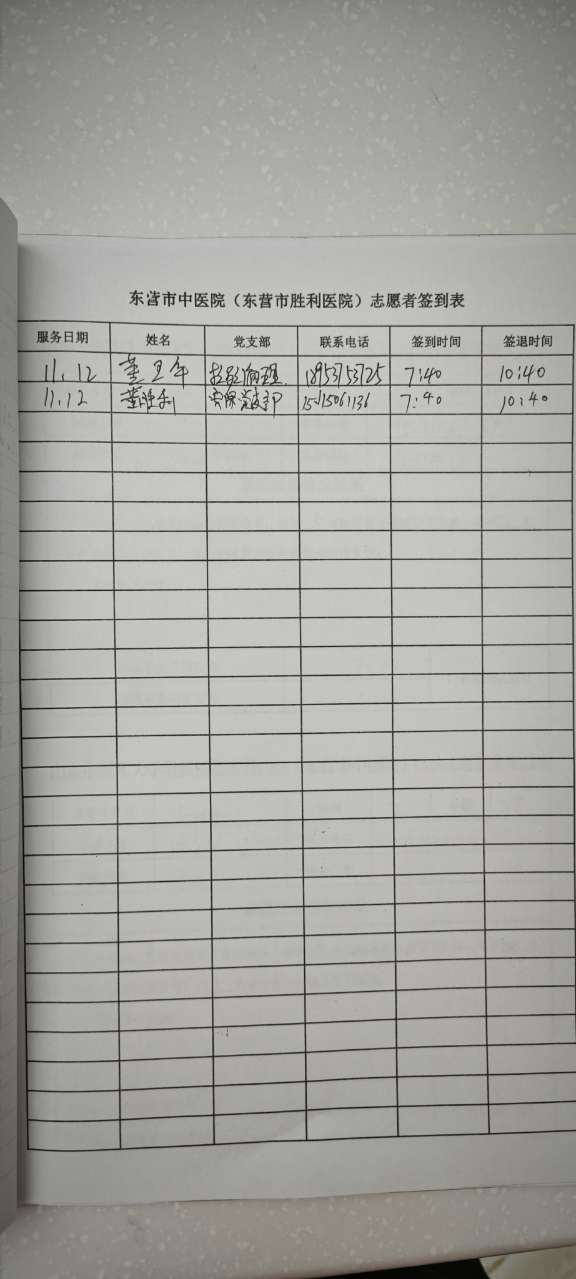 东营市中医院（东营市胜利医院）志愿者签到表
服务日期 姓名 党支部 联系电话 签到时间 签退时间
11.12 董卫年 病理 18953753725 7:40 10:40
11.12 董 利 党支部 7:40 10:40